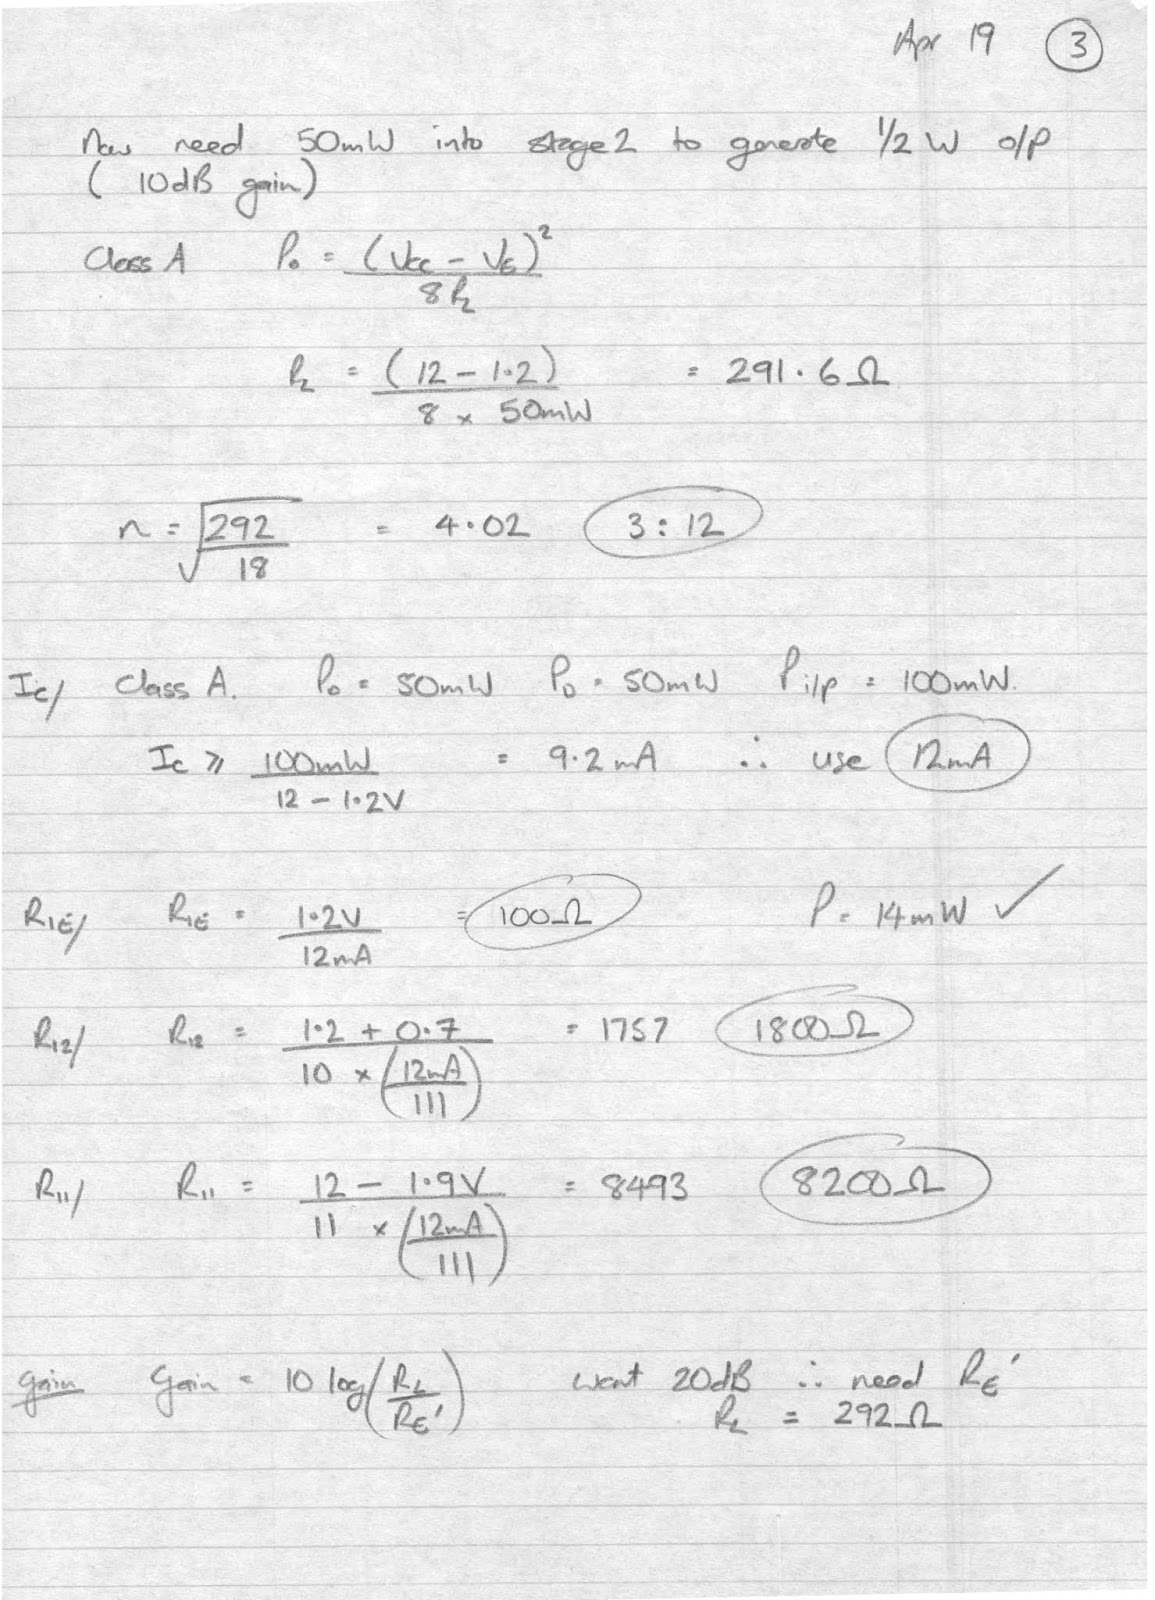 Apr 19 (3)
Now need 50mW into stage 2 to generate 1/2 W o/p
( 10dB gain)
Class A Po = (Vcc - VE)² / 8RL
RL = (12 - 1.2) / 8 x 50mW = 291.6Ω
n = √292/18 = 4.02 3:12
Ic/ Class A. Po = 50mW PD = 50mW Pi/p = 100mW.
Ic ⩾ 100mW / 12 - 1.2V = 9.2mA ∴ use 12mA
R1E/ R1E = 1.2V / 12mA = 100Ω P = 14mW ✓
R12/ R12 = 1.2 + 0.7 / 10 x (12mA / 111) = 1757 1800Ω
R11/ R11 = 12 - 1.9V / 11 x (12mA / 111) = 8493 8200Ω
gain Gain = 10 log(RL / RE') want 20dB ∴ need RE'
RL = 292Ω